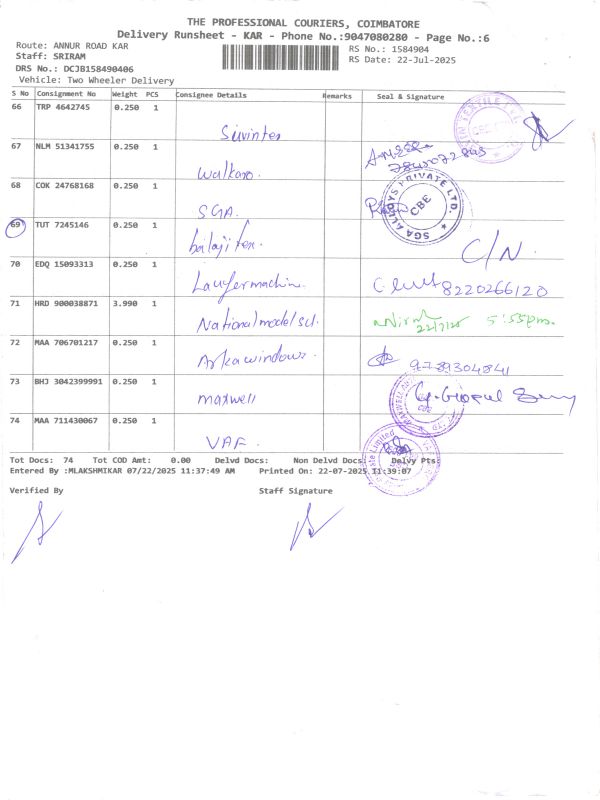 THE PROFESSIONAL COURIERS, COIMBATORE
Delivery Runsheet - KAR - Phone No.:9047080280 - Page No.:6
Route: ANNUR ROAD KAR
RS No.: 1584904
Staff: SRIRAM
RS Date: 22-Jul-2025
DRS No.: DCJB158490406
Vehicle: Two Wheeler Delivery
S No Consignment No Weight PCS Consignee Details Remarks Seal & Signature
66 TRP 4642745 0.250 1
Suvinten
67 NLM 51341755 0.250 1
Walkaro.
68 COK 24768168 0.250 1
SGA.
SGA ALLOYS PRIVATE LTD. CBE
69 TUT 7245146 0.250 1
balaji tex.
C/N.
70 EDQ 15093313 0.250 1
Laufer machin.
8220266120
71 HRD 900038871 3.990 1
National model scl.
Nirml
22/7/25 5:55pm.
72 MAA 706701217 0.250 1
Arka windows.
9789304841
73 BHJ 3042399991 0.250 1
maxwell
G. Gopal
74 MAA 711430067 0.250 1
VAF.
Tot Docs: 74 Tot COD Amt: 0.00 Delvd Docs: Non Delvd Docs: Delvy Pts:
Entered By :MLAKSHMIKAR 07/22/2025 11:37:49 AM Printed On: 22-07-2025 11:39:07
Verified By Staff Signature